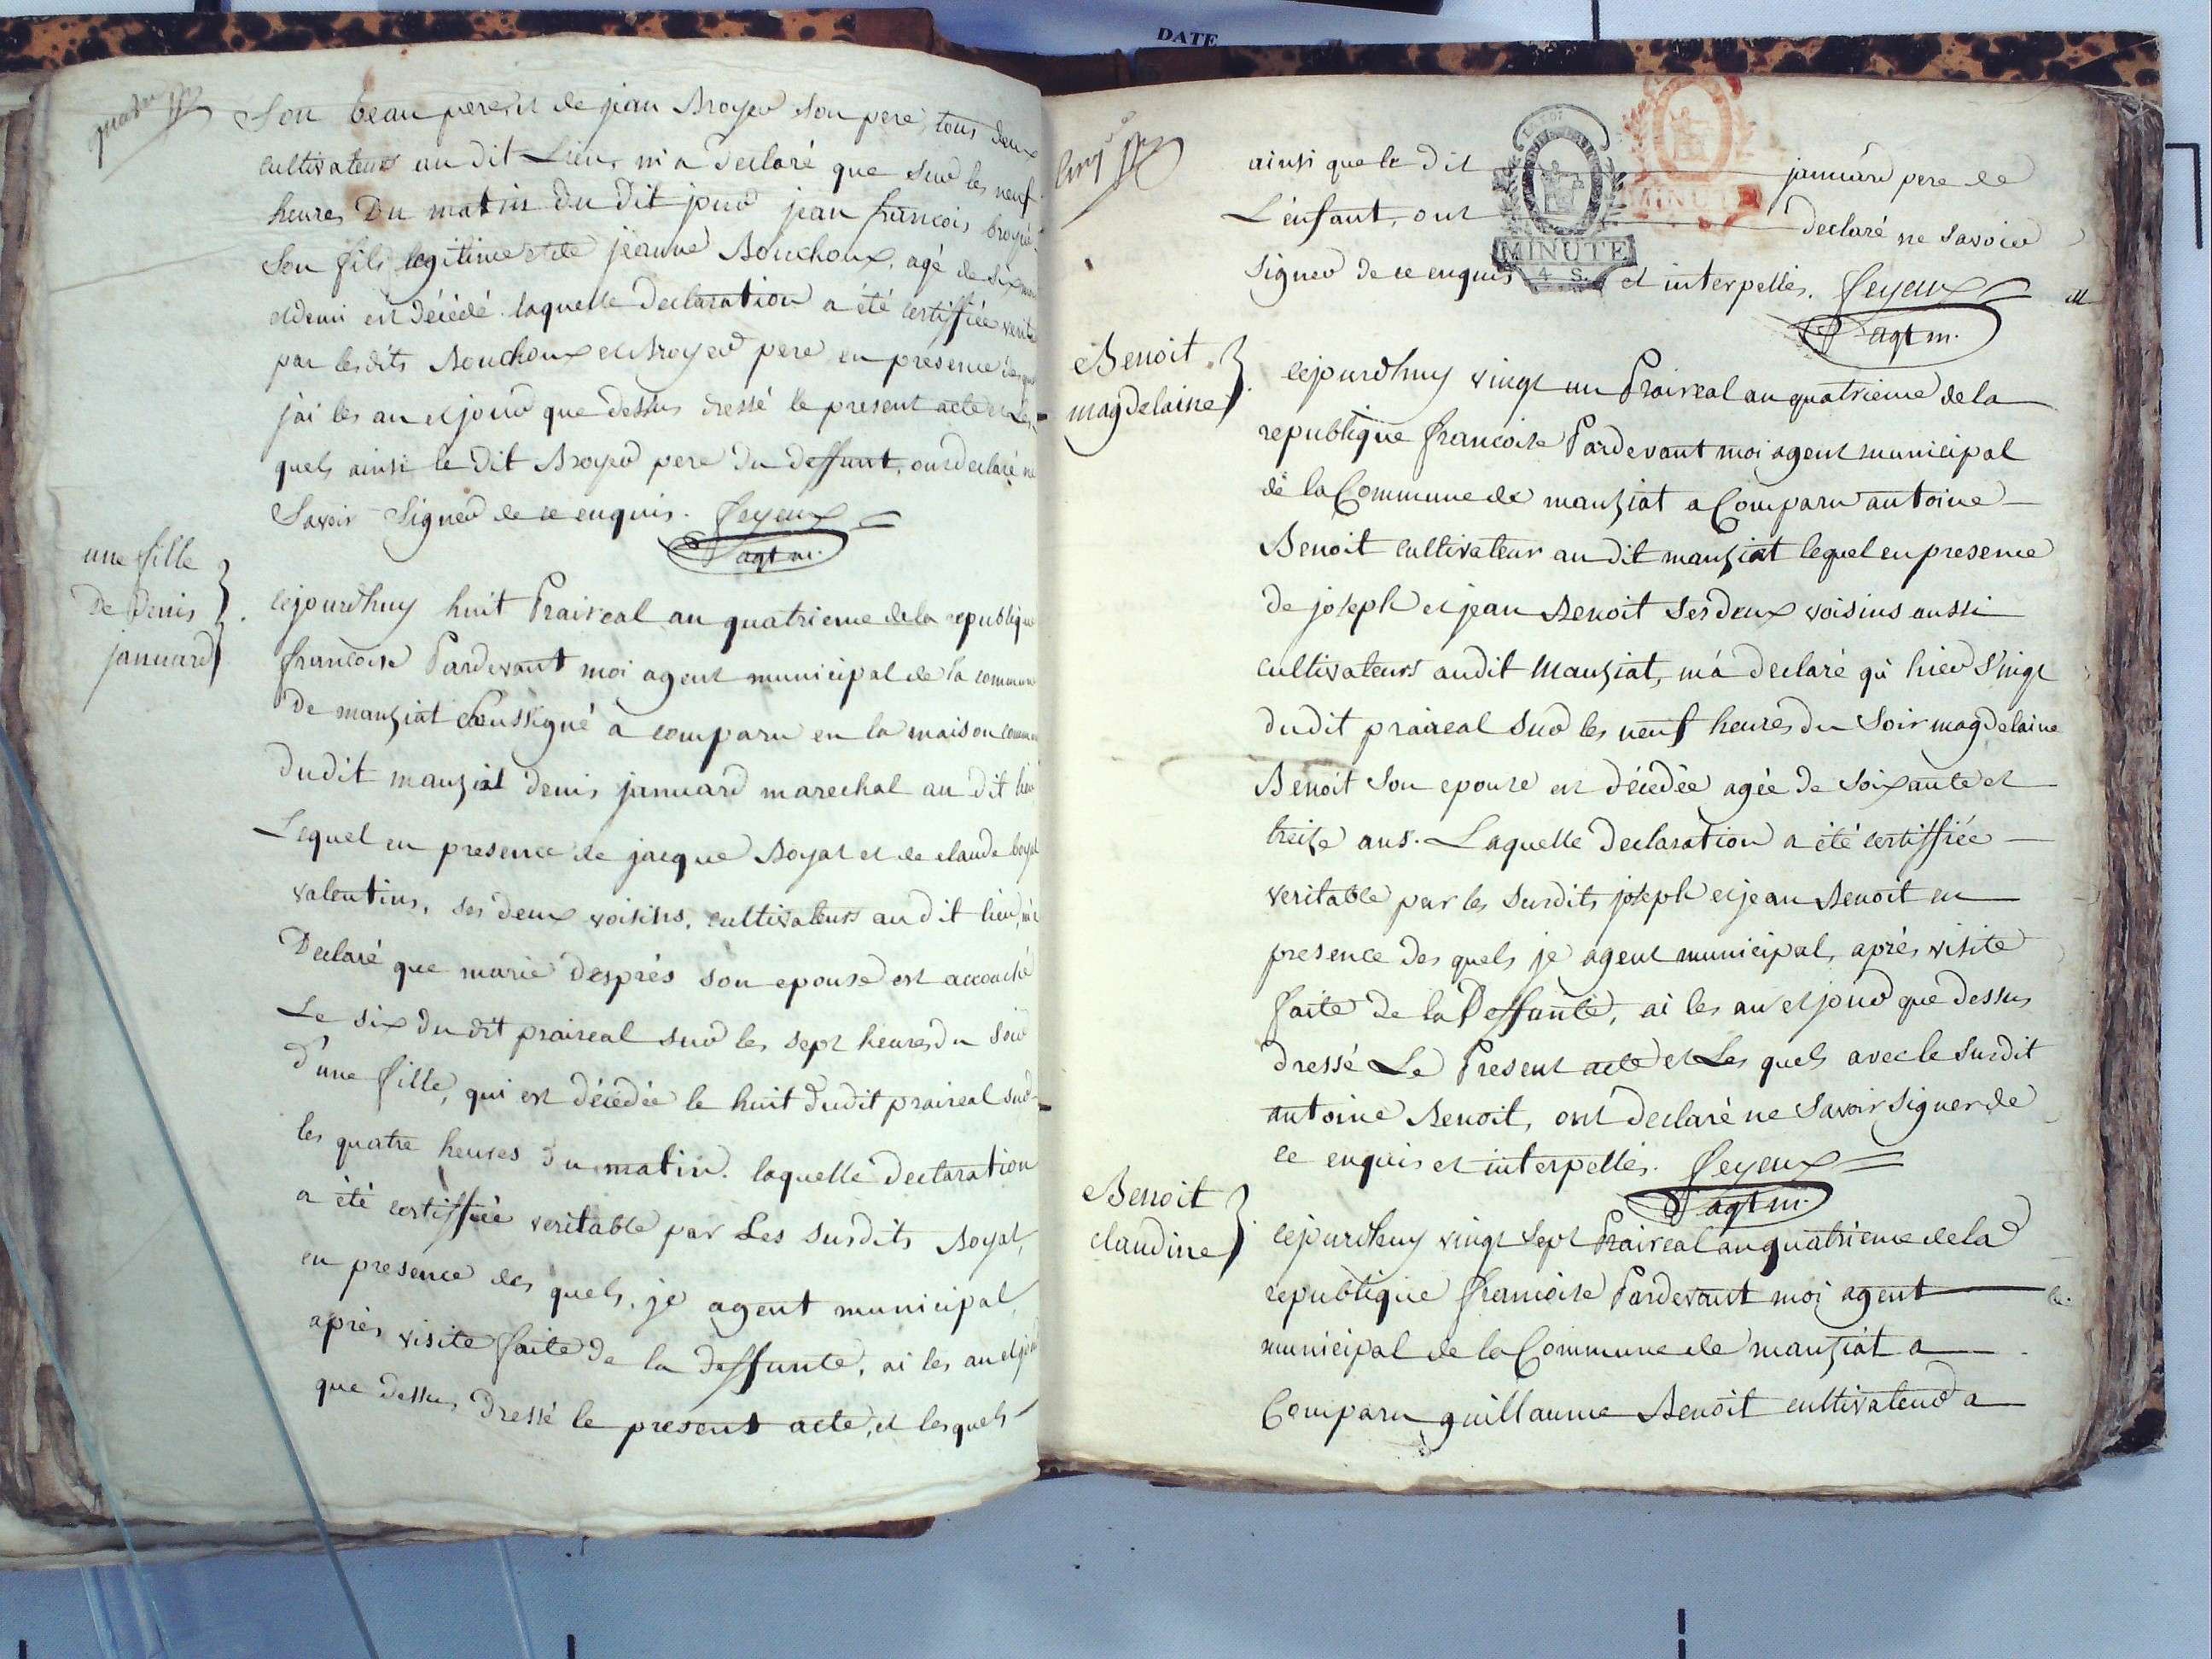 DATE
Son beau pere, et de jean Broyer son pere, tous deux
cultivateurs au dit Lieu, m'a declaré que sur les neuf
heures Du matin du dit jour jean francois broyer
Son fils legitime et de jeanne Bouchoux, agé de six mois
et demi est décédé. laquelle declaration a été certiffiée verita
par les dits Bouchoux et Broyer pere en presence des quels
j'ai les an et jour que dessus dressé le present acte et Les
quels ainsi le dit Broyer pere du deffunt, ont declaré ne
Savoir Signer de ce enquis. feyeux
agt m.
une fille
De Denis
januard
cejourdhuy huit Praireal an quatrieme de la republique
francoise Pardevant moi agent municipal de la commune
De manziat soussigné a comparu en la maison commune
dudit manziat denis januard marechal au dit lieu
Lequel en presence de jacque Boyat et de claude boyat
valentins, ses deux voisins, cultivateurs au dit lieu, m'a
Declaré que marie desprès son epouse est accouché
Le six du dit praireal sur les sept heures du soir
d'une fille, qui est décédée le huit dudit praireal sur
les quatre heures du matin. laquelle declaration
a été certiffiée veritable par Les susdits Boyat,
en presence des quels, je agent municipal,
après visite faite de la deffunte, ai les an et jour
que dessus dressé le present acte, et les quels
ainsi que le dit januard pere de
L'enfant, ont declaré ne savoir
signer de ce enquis et interpellés. feyeux
MINUTE
MINUTE
4 S.
agt m.
Benoit
magdelaine
cejourdhuy vingt un Praireal an quatrieme de la
republique francoise Pardevant moi agent municipal
de la Commune de manziat a Comparu antoine
Benoit cultivateur au dit manziat lequel en presence
de joseph et jean Benoit ses deux voisins aussi
cultivateurs audit Manziat, m'a declaré qu'hier Vingt
dudit praireal sur les neuf heures du Soir magdelaine
Benoit son epouse est décédée agée de soixante et
treize ans. Laquelle declaration a été certiffiée
veritable par les susdits joseph et jean Benoit en
presence des quels je agent municipal, après visite
faite de la Deffunte, ai les an et jour que dessus
dressé Le Present acte et Les quels avec le susdit
antoine Benoit, ont declaré ne savoir signer de
ce enquis et interpellés. feyeux
agt m.
Benoit
claudine
cejourdhuy vingt sept Praireal an quatrieme de la
republique francoise Pardevant moi agent
municipal de la Commune de manziat a
Comparu guillaume Benoit cultivateur a